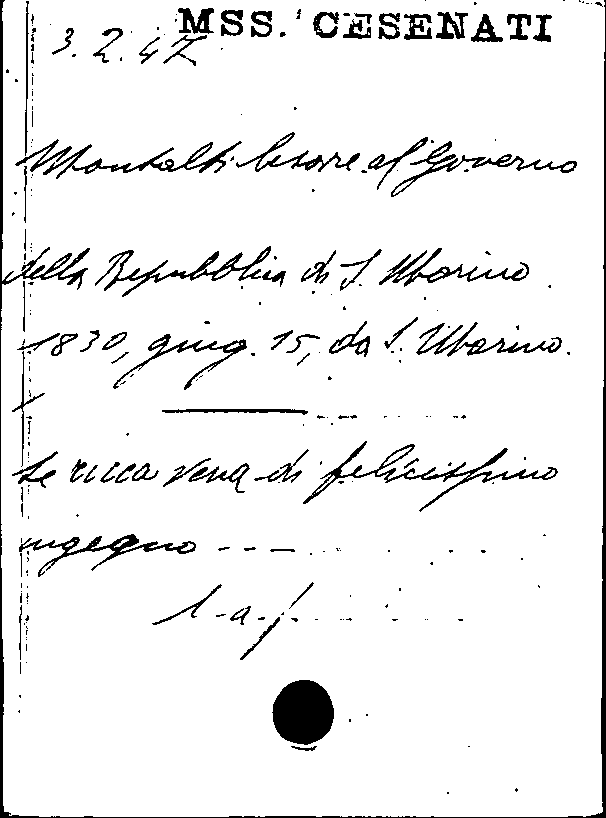 MSS. CESENATI
3.2.47
Montalti Cesare al Governo
della Repubblica di S. Marino
1830, giug. 15, da S. Marino.
Se ricca vena di felicissimo
ingegno ---
l.a.f.